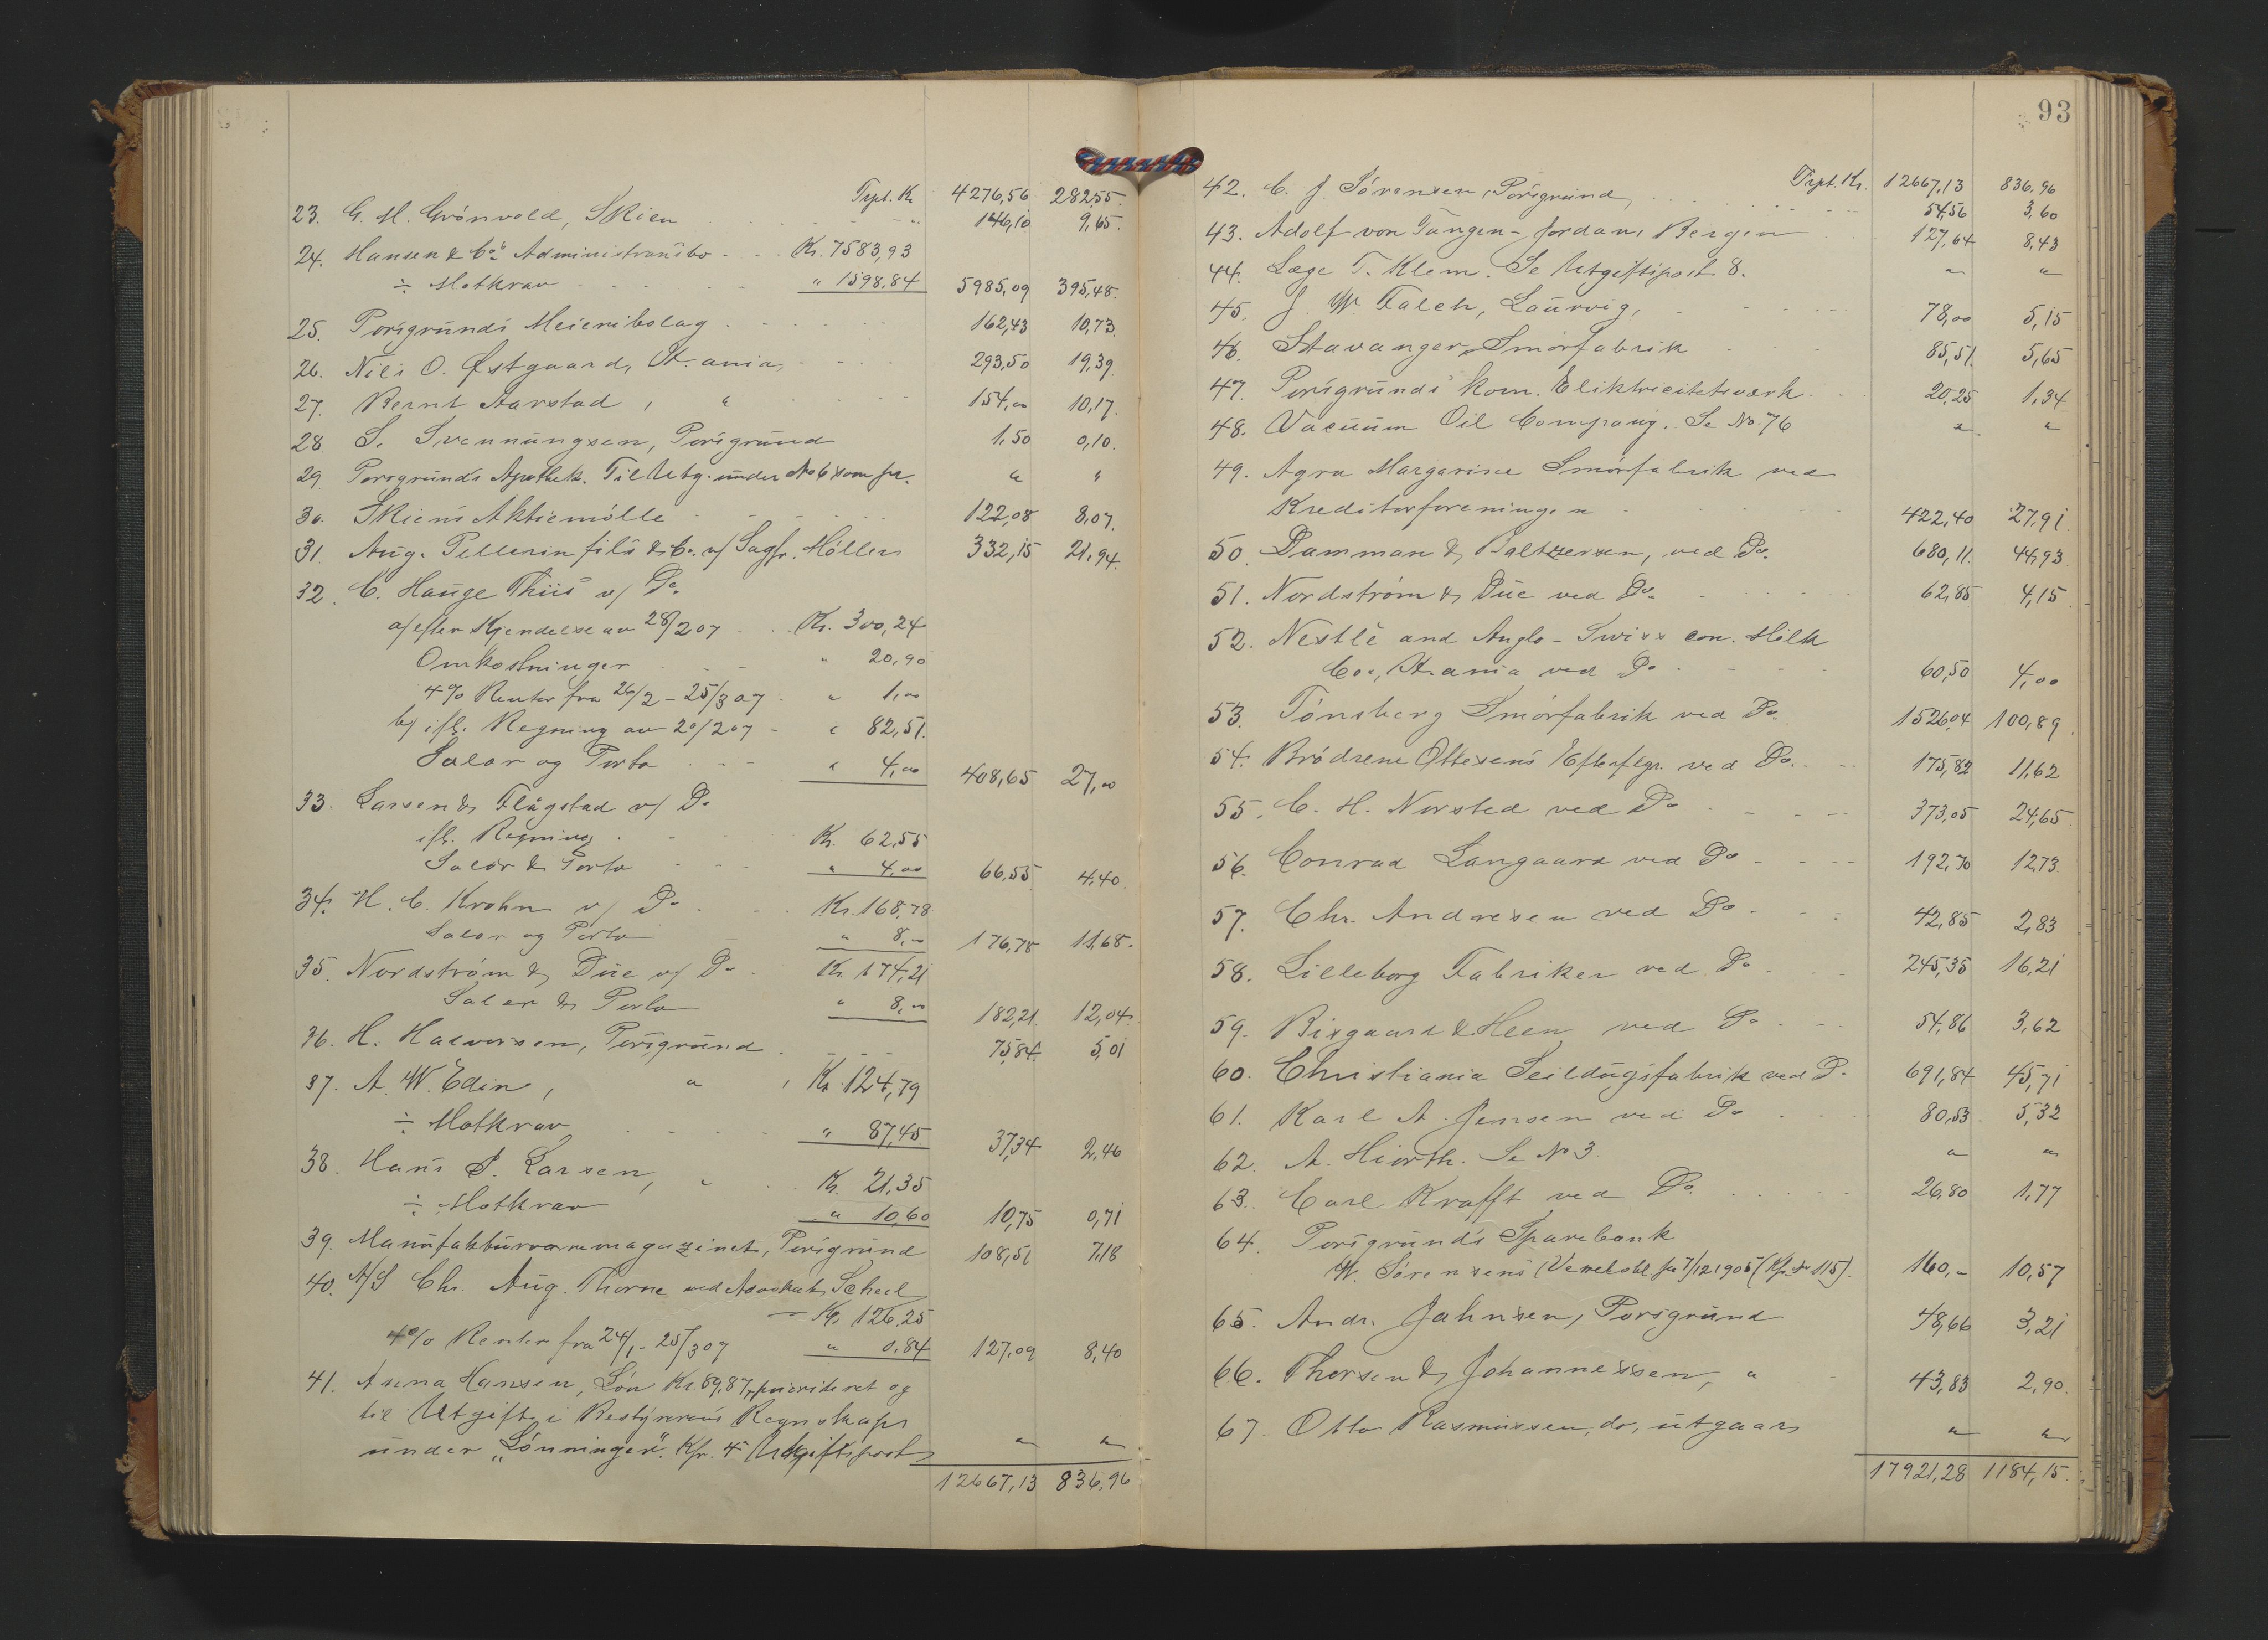 Trpt. Kr. 4276,56 282,55.
23. G. M. Grönvold, Skien " 146,10 9,65.
24. Hansen & Co's Administransbo Kr. 7583,93
÷ Motkrav " 1598,84 5985,09 395,48.
25. Porsgrunds Meieribolag 162,43 10,73.
26. Nils O. Østgaard, K.ania 293,50 19,39.
27. Bernt Aarstad, " 154,00 10,17.
28. S. Svennungsen, Porsgrund 1,50 0,10.
29. Porsgrunds Apothek. Til Utg. under No 6 som pr. " "
30. Skiens Aktiemölle 122,08 8,07.
31. Aug. Pellerin fils & Co. v/ Sagf. Möller 332,15 21,94.
32. C. Hauge Thiis v/ Do
a/ efter Kjendelse av 28/2 07 Kr. 300,24
Omkostninger " 20,90
4% Renter fra 26/2 - 25/3 07 " 1,00
b/ ifl. Regning av 20/2 07 " 82,51.
Salær og Porto " 4,00 408,65 27,00
33. Larsen & Flugstad v/ Do
ifl. Regning Kr. 62,55
Salær & Porto " 4,00 66,55 4,40.
34. H. C. Krohn v/ Do Kr. 168,78
Salær og Porto " 8,00 176,78 11,68.
35. Nordström & Due v/ Do Kr. 174,21
Salær & Porto " 8,00 182,21. 12,04.
36. H. Halvorsen, Porsgrund 75,84 5,01
37. A. W. Edin, " , Kr. 124,79
÷ Motkrav " 87,45. 37,34 2,46
38. Hans P. Larsen, " Kr. 21,35
÷ Motkrav " 10,60 10,75 0,71
39. Manufakturvaremagazinet, Porsgrund 108,51 7,18
40. A/S Chr. Aug. Thorne ved Advokat Scheel
Kr. 126,25
4% Renter fra 24/1 - 25/3 07 " 0,84 127,09 8,40
41. Anna Hansen, Lön Kr. 89,87, prioriteret og
til Utgift i Bestyrerens Regnskaps
under "Lönninger". Kfr. 4 Utgiftspost " "
12667,13 836,96
93
Trpt. Kr. 12667,13 836,96
42. C. J. Sörensen, Porsgrund, 54,56 3,60
43. Adolf von Tangen-Jordan, Bergen 127,64 8,43
44. Læge T. Klem. Se Utgiftspost 8. " "
45. J. W. Falch, Laurvig, 78,00 5,15
46. Stavanger Smörfabrik 85,51. 5,65
47. Porsgrunds kom. Eliktricitetsværk 20,25 1,34
48. Vacuum Oil Company. Se No 76 " "
49. Agra Margarine Smörfabrik ved
Kreditorforeningen 422,40 27,91.
50. Damman & Baltzersen, ved Do. 680,11. 44,93.
51. Nordström & Due ved Do. 62,85 4,15
52. Nestlè and Anglo-Swiss con. Milk
Co., K.ania ved Do 60,50 4,00
53. Tönsberg Smörfabrik ved Do. 1526,04 100,89.
54. Brödrene Ottesens Efterflgr. ved Do. 175,82 11,62
55. C. H. Norsted ved Do 373,05 24,65
56. Conrad Langaard ved Do 192,70 12,73.
57. Chr. Andresen ved Do 42,85 2,83
58. Lilleborg Fabriker ved Do 245,35 16,21
59. Bisgaard & Heen ved Do 54,86 3,62
60. Christiania Seildugsfabrik ved Do 691,84 45,71
61. Karl A. Jensen ved Do 80,53 5,32
62. A. Hiorth. Se No 3. " "
63. Carl Krafft ved Do. 26,80 1,77
64. Porsgrunds Sparebank
W. Sörensens (Vexelobl. pr 7/12 1906 (Kfr. No 115). 160,00 10,57
65. Andr. Jahnsen, Porsgrund 48,66 3,21
66. Thorsen & Johannessen, " 43,83 2,90.
67. Otto Rasmussen, do, utgaar " "
17921,28 1184,15.